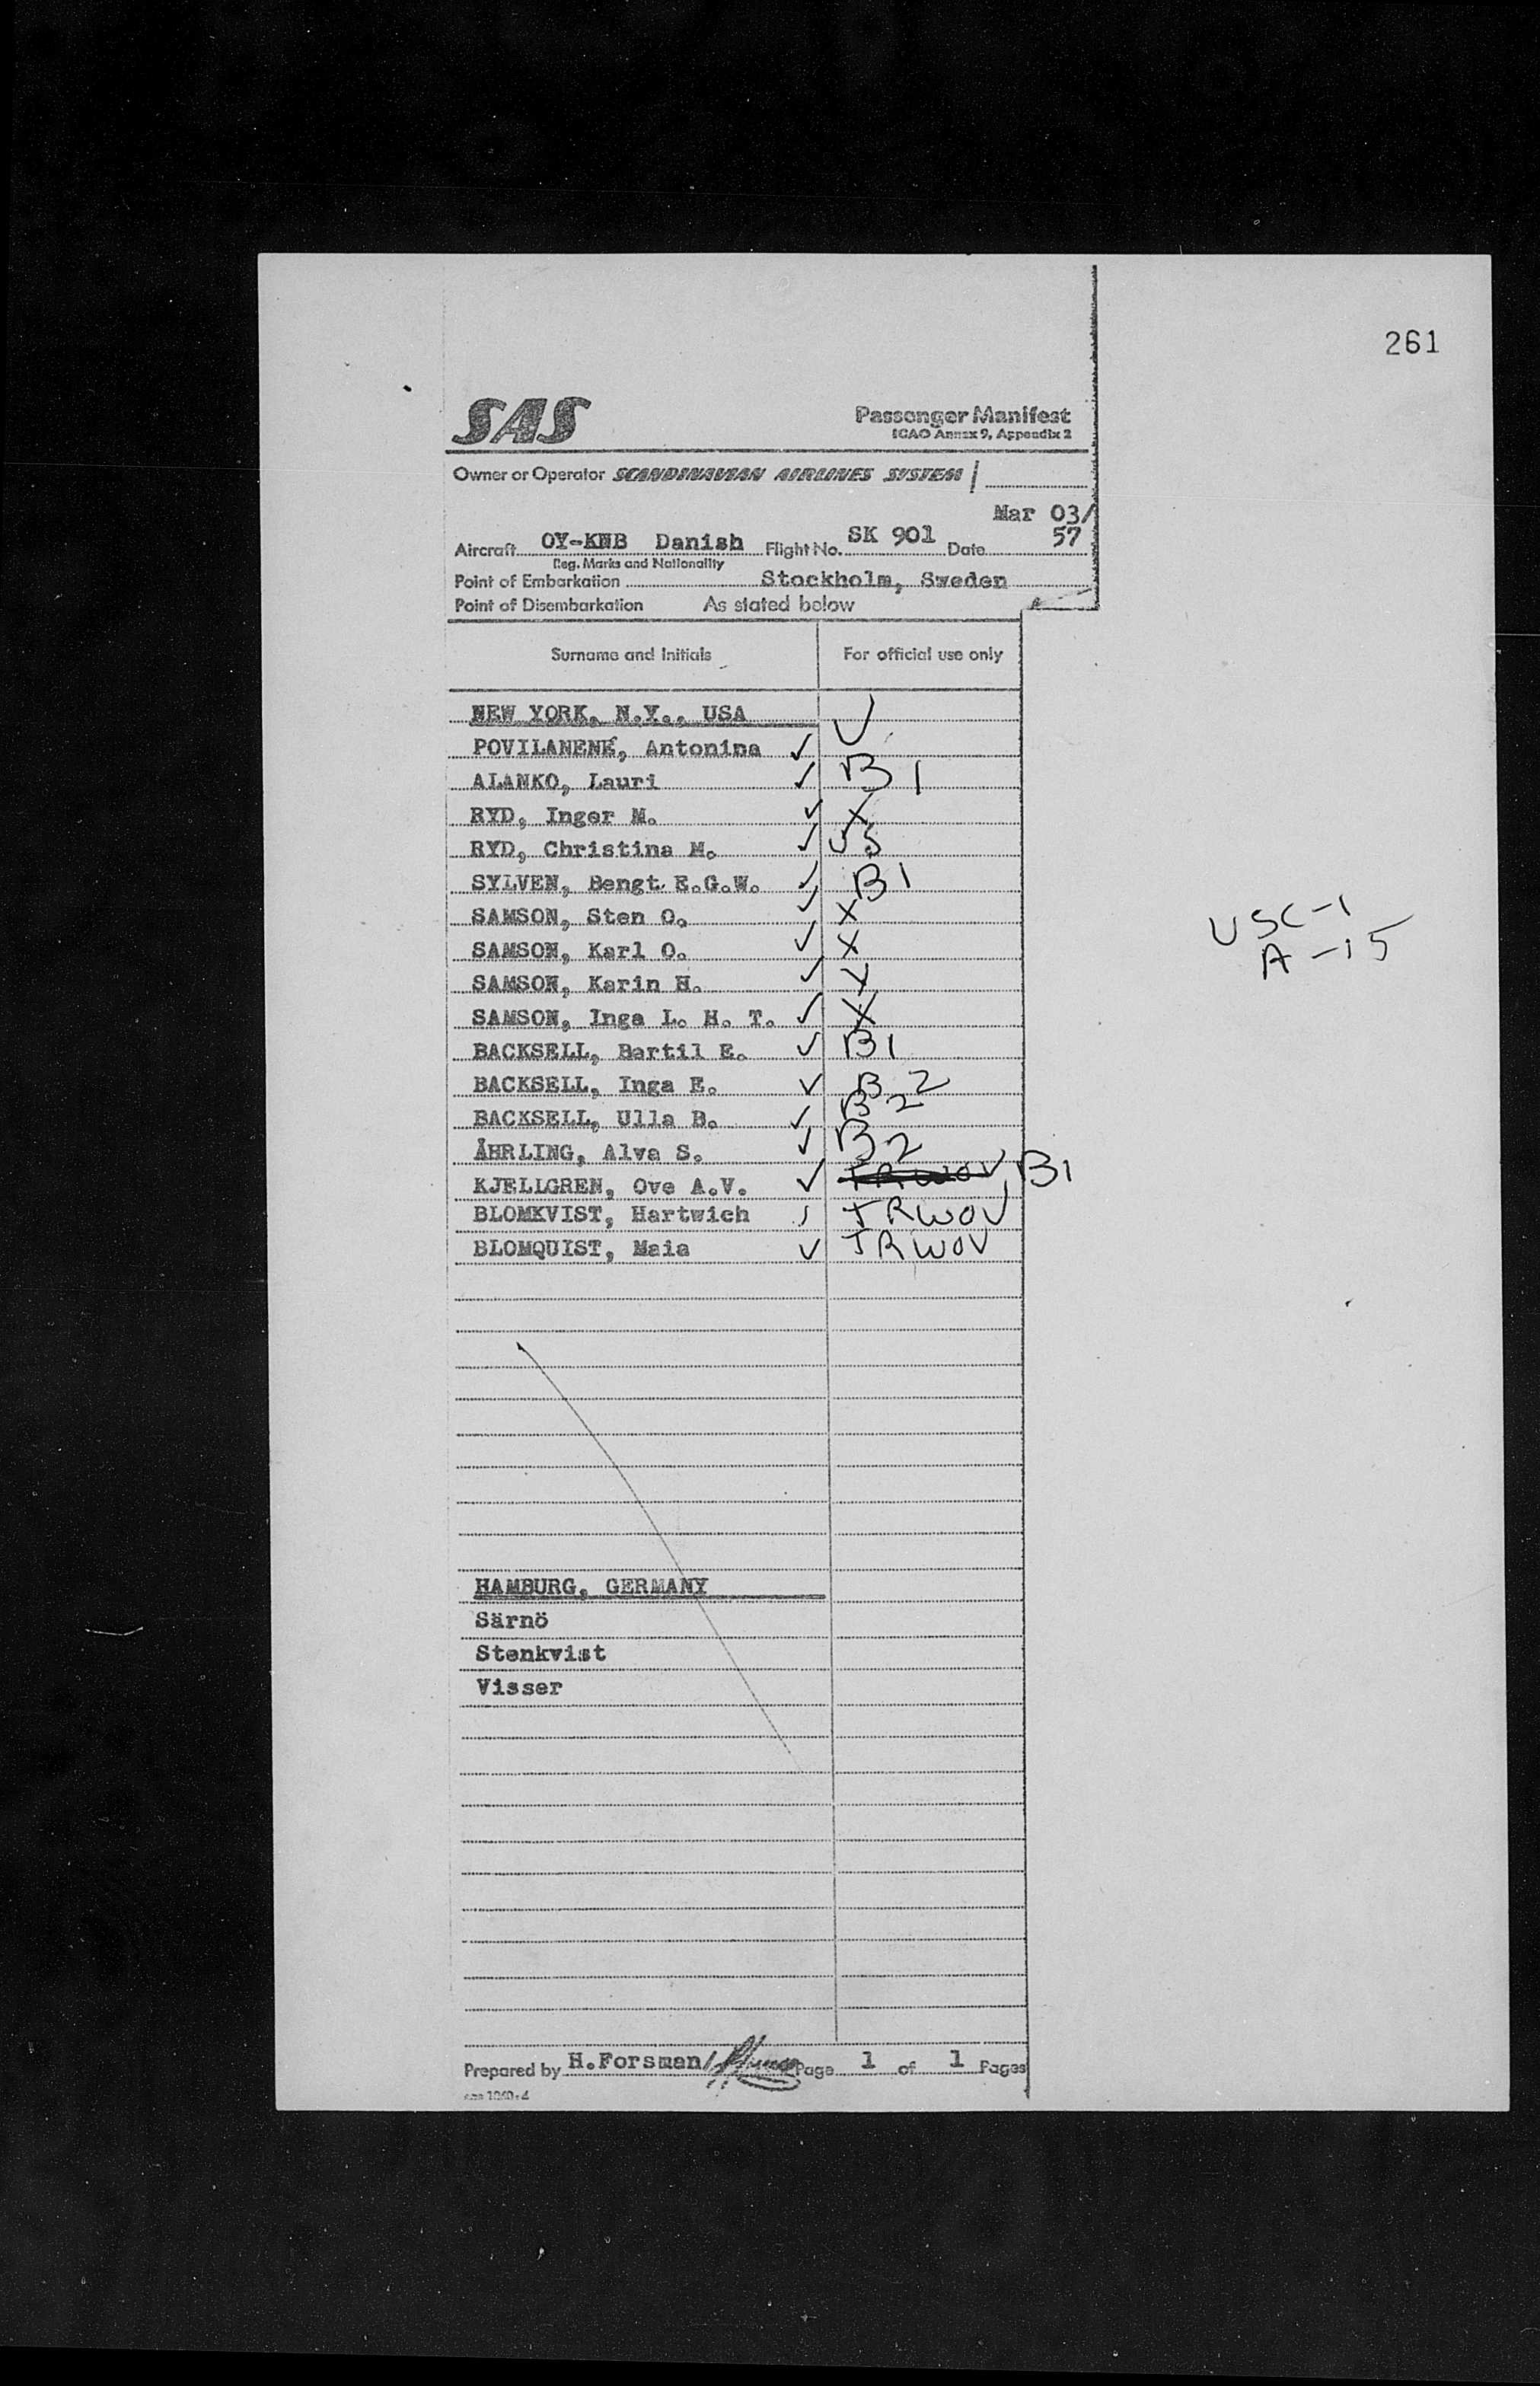 261
SAS
Passenger Manifest
ICAO Annex 9, Appendix 2
Owner or Operator SCANDINAVIAN AIRLINES SYSTEM
Mar 03/
Aircraft OY-KNB Danish Flight No. SK 901 Date 57
Reg. Marks and Nationality
Point of Embarkation Stockholm, Sweden
Point of Disembarkation As stated below
Surname and Initials For official use only
NEW YORK, N.Y., USA
POVILANENE, Antonina ✓ V
ALANKO, Lauri ✓ B1
RYD, Inger M. ✓ X
RYD, Christina M. ✓ US
SYLVEN, Bengt E.G.W. ✓ B1
SAMSON, Sten O. ✓ X
SAMSON, Karl O. ✓ X
USC-1
A-15
SAMSON, Karin H. ✓ X
SAMSON, Inga L. H. T. ✓ X
BACKSELL, Bertil E. ✓ B1
BACKSELL, Inga E. ✓ B2
BACKSELL, Ulla B. ✓ B2
ÅHRLING, Alva S. ✓ B2
KJELLGREN, Ove A.V. ✓ TRWOV B1
BLOMKVIST, Hartwich ✓ TRWOV
BLOMQUIST, Maia ✓ TRWOV
HAMBURG, GERMANY
Särnö
Stenkvist
Visser
Prepared by H.Forsman/ Page 1 of 1 Pages